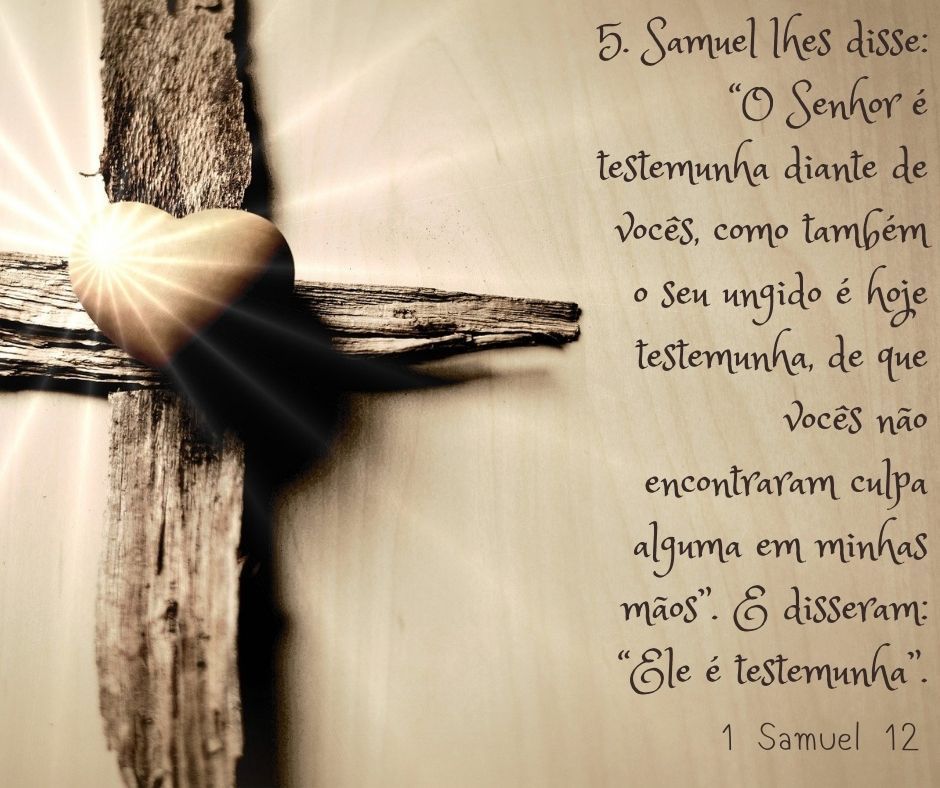 5. Samuel lhes disse:
“O Senhor é
testemunha diante de
vocês, como também
o seu ungido é hoje
testemunha, de que
vocês não
encontraram culpa
alguma em minhas
mãos”. E disseram:
“Ele é testemunha”.
1 Samuel 12